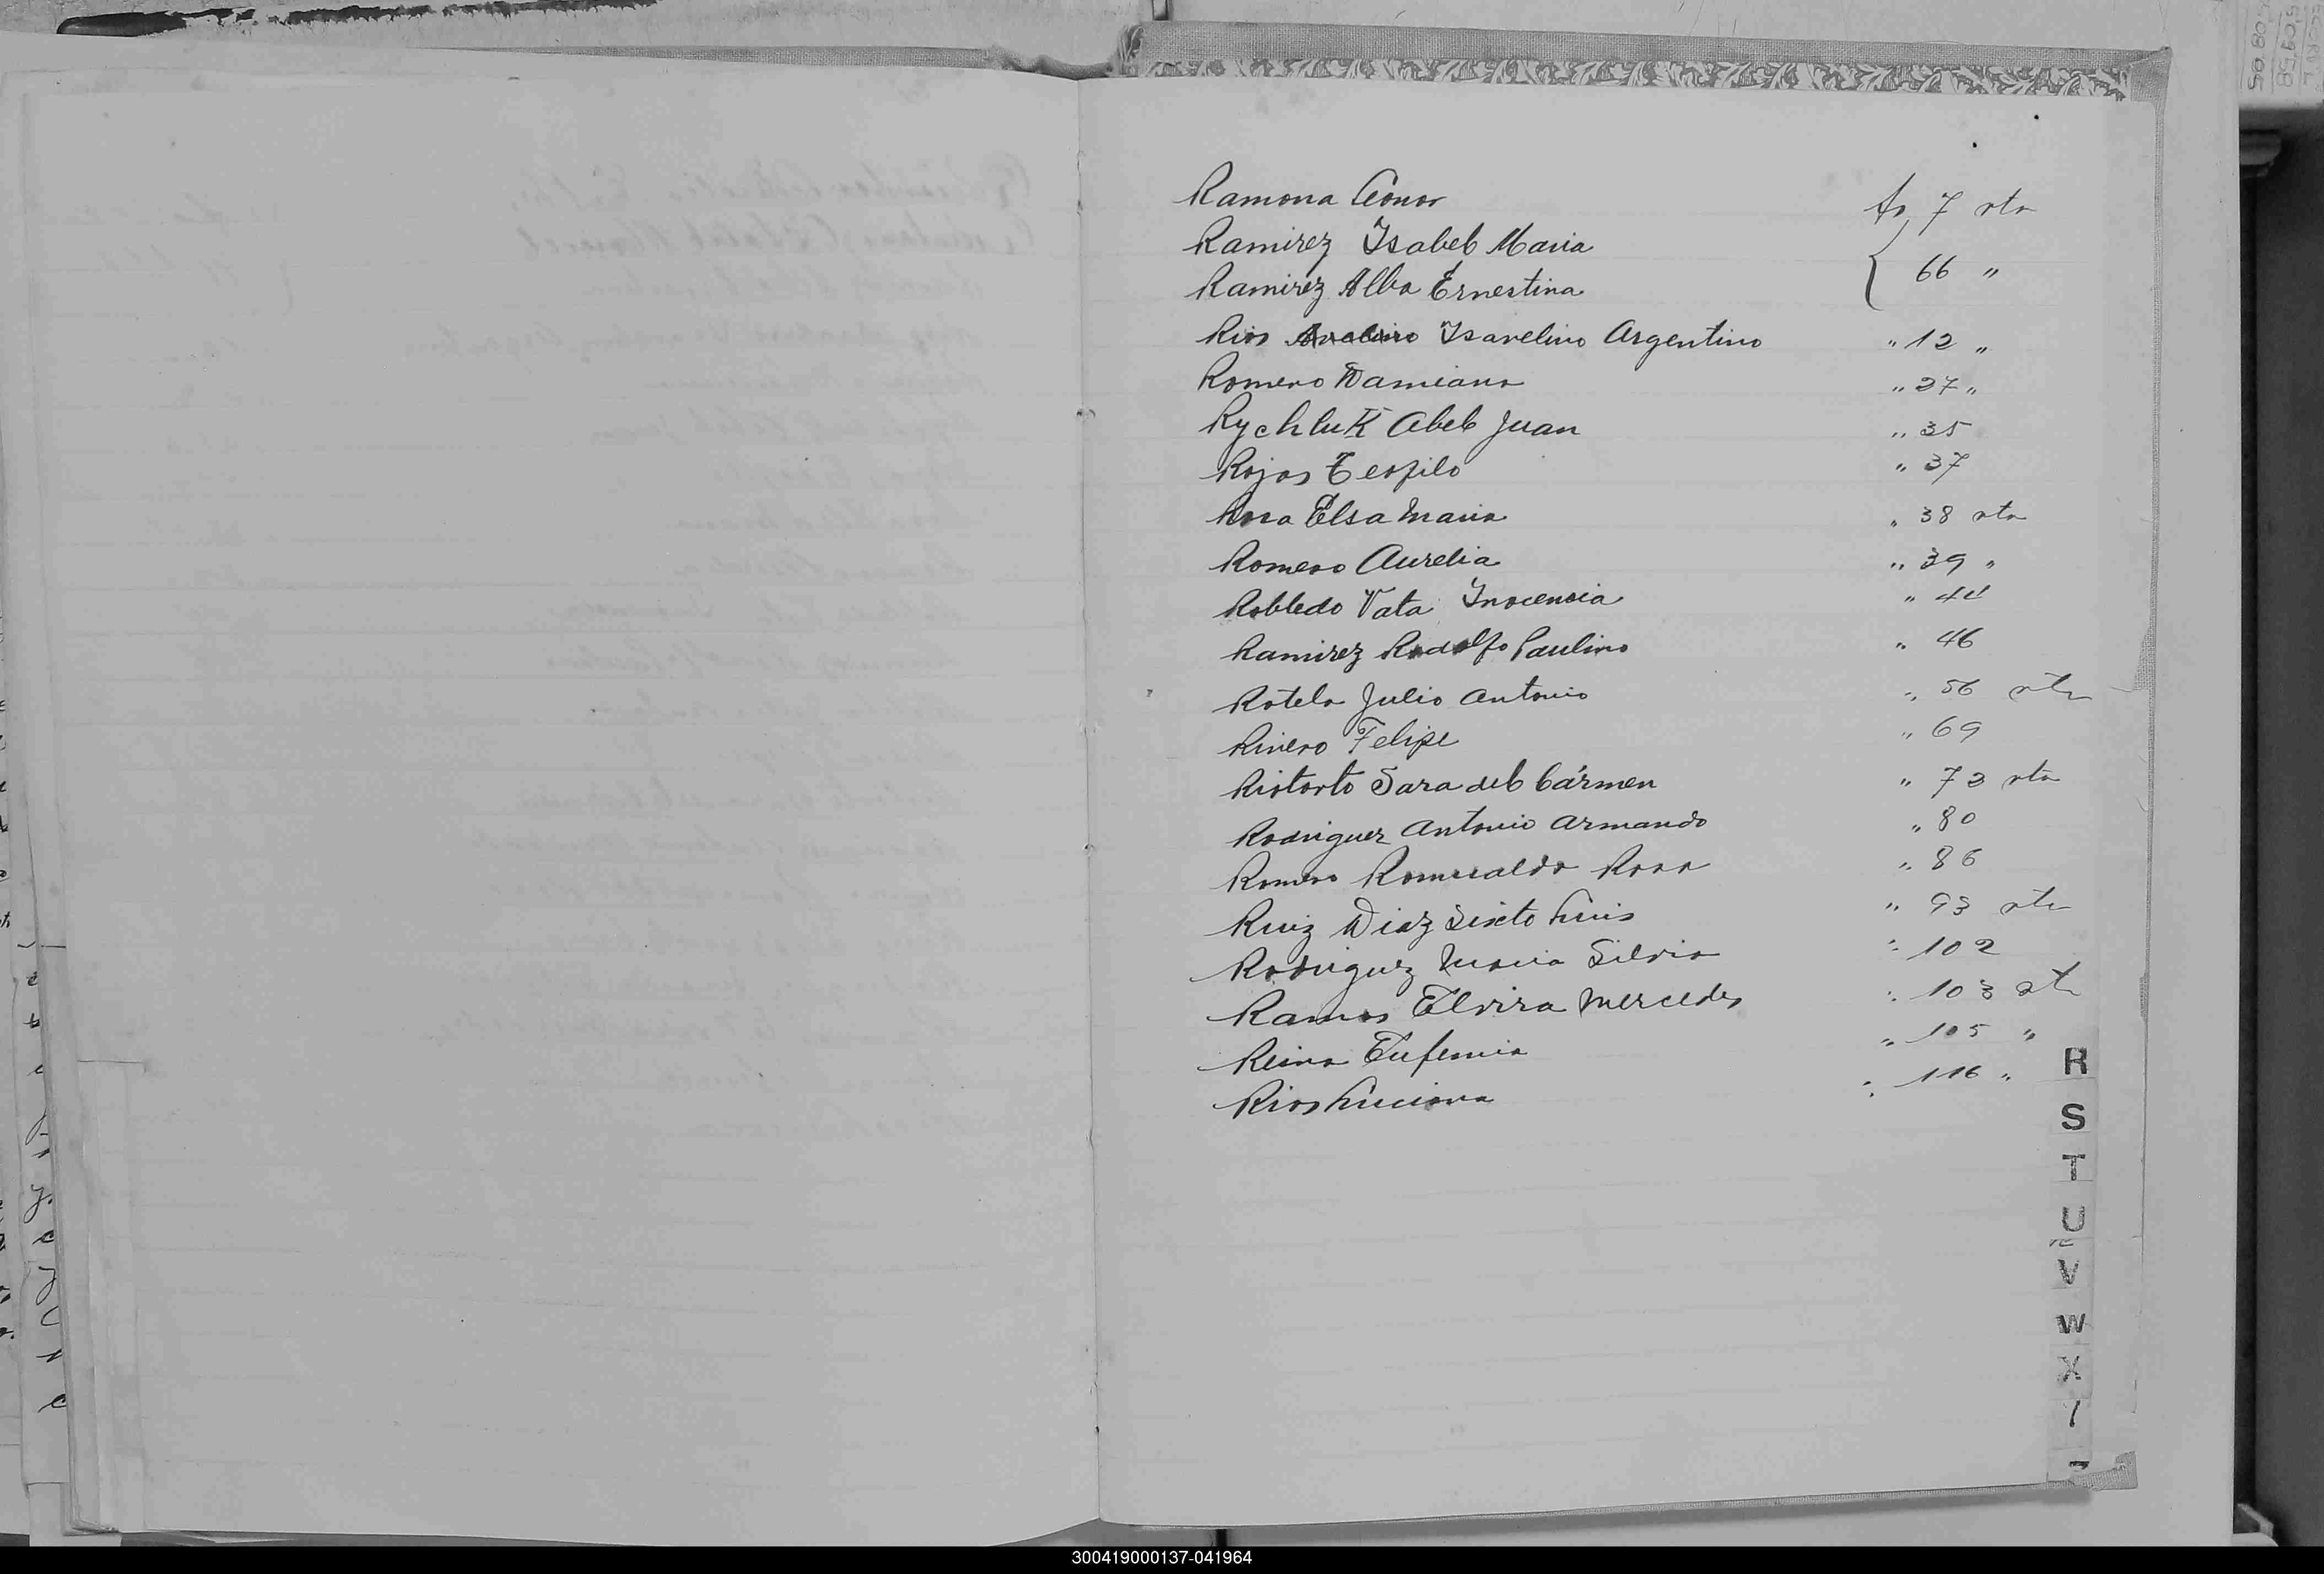 Ramona Leonor fo 7 vta
Ramirez Isabel Maria
Ramirez Alba Ernestina { 66 "
Rios Isavelino Argentino " 12 "
Romero Damiana " 27 "
Rychluk Abel Juan " 35
Rojas Teofilo " 37
Rosa Elsa Maria " 38 vta
Romero Aurelia " 39 "
Robledo Tata Inocencia " 44
Ramirez Rodolfo Paulino " 46
Rotela Julio Antonio " 56 vta
Rivero Felipe " 69
Riotorto Sara del Cármen " 73 vta
Rodriguez Antonio Armando " 80
Romero Romualdo Rosa " 86
Ruiz Diaz Sixto Luis " 93 vta
Rodriguez Maria Silvia " 102
Ramos Elvira Mercedes " 103 vta
Reina Eufemia " 105 "
Rios Luciana " 116 "
R
S
T
U
V
W
X
300419000137-041964